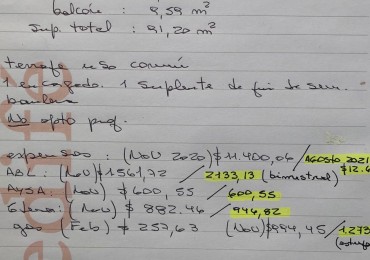 balcón : 9,59 m²
sup. total : 91,20 m²
terraza uso común
1 encargado. 1 suplente de fin de sem.
baulera
No apto prof.
expensas : (Nov 2020) $ 11.400,06 / AGOSTO 2021 $12.6
ABL : (Nov) $ 1561,72 / 2133,13 (bimestral)
AySA : (Nov) $ 600,55 / 600,55
(Nov) $ 882.46 / 946,82
gas (Feb) $ 257,63 (Nov) $994,45 / 1.273